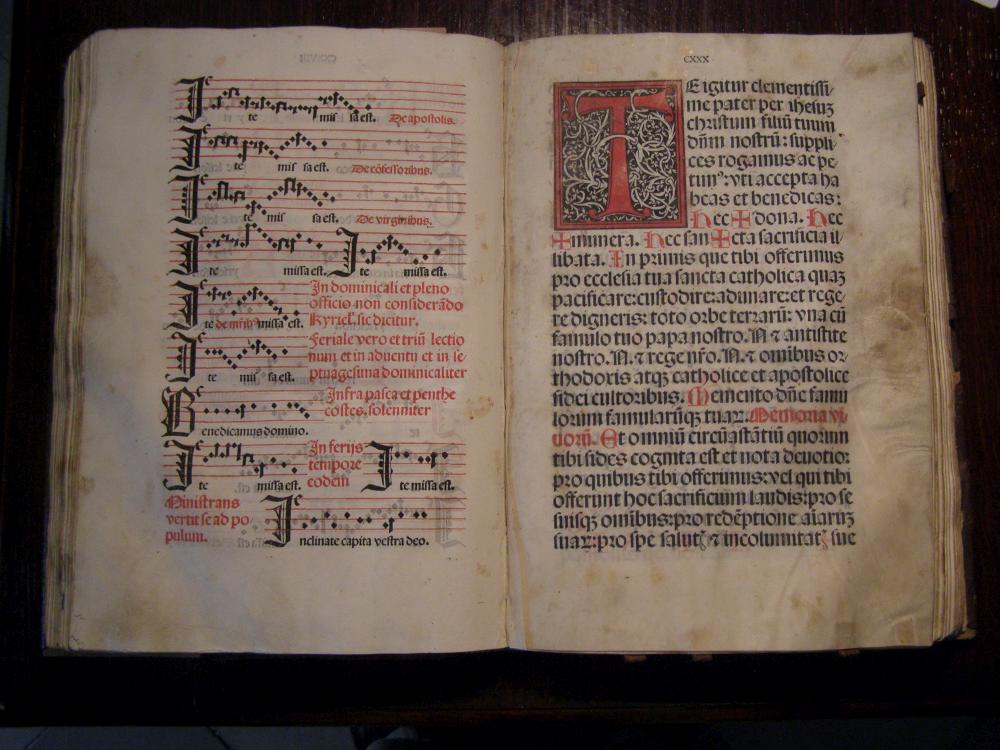 te mis sa est. De apostolis.
te mis sa est. De cōfessoribus.
te mis sa est. De virginibus.
te missa est. I te missa est.
te de mr̄ib⁹ missa est.
In dominicali et pleno
officio non considerādo
Kyriel. sic dicitur.
te mis sa est.
Feriale vero et triū lectio
num et in aduentu et in se
ptuagesima dominicaliter
Benedicamus domino.
Infra pasca et penthe
costes. solenniter
I te missa est.
In ferijs
tempore
eodem
I te missa est.
Ministrans
vertit se ad po
pulum.
Inclinate capita vestra deo.
CXXX
TE igitur clementissi
me pater per ihesuz
christum filiū tuum
dn̄m nostrū: suppli
ces rogamus ac pe
tim⁹: vti accepta ha
beas et benedicas:
hec ✠ dona. hec
✠ munera. hec san ✠ cta sacrificia il
libata. In primis que tibi offerimus
pro ecclesia tua sancta catholica quaz
pacificare: custodire: adunare: et rege
re digneris: toto orbe terrarū: vna cū
famulo tuo papa nostro. N. ⁊ antistite
nostro. N. ⁊ rege nr̄o. N. ⁊ omībus or
thodoxis atqꝫ catholice et apostolice
fidei cultoribus. Memento dn̄e famu
lorum famularūqꝫ tuaꝝ. Memoria vi
uorū. Et omniū circūastātiū quorum
tibi fides cognita est et nota deuotio:
pro quibus tibi offerimus: vel qui tibi
offerunt hoc sacrificium laudis: pro se
suisqꝫ omībus: pro redēptione aīarūꝫ
suaꝝ: pro spe salutꝭ ⁊ incolumitatꝭ sue